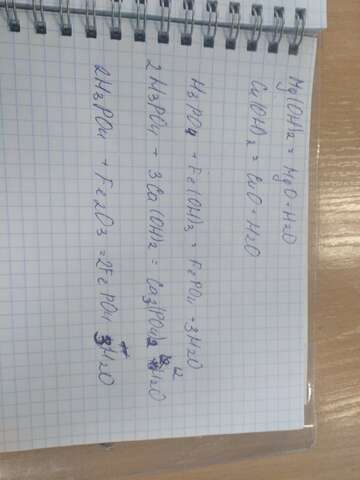 Mg(OH)2 = MgO + H2O
Cu(OH)2 = CuO + H2O
H3PO4 + Fe(OH)3 = FePO4 + 3H2O
2H3PO4 + 3Ca(OH)2 = Ca3(PO4)2 H2O
2H3PO4 + Fe2O3 = 2FePO4 + 3H2O